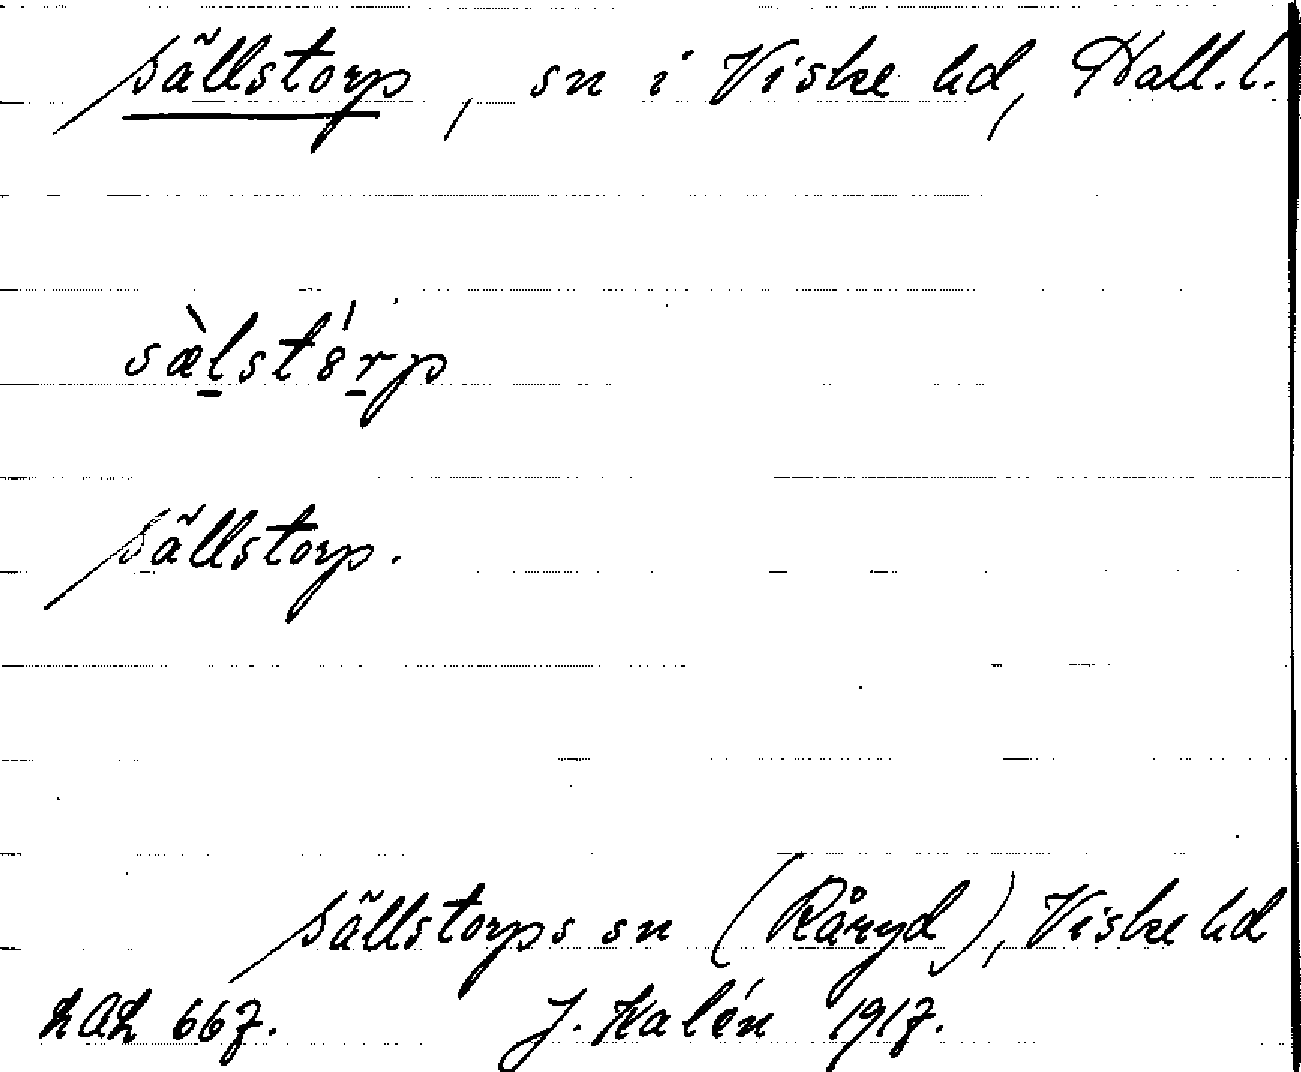 Sällstorp, sn i Viske hd, Hall.l.
sæ̀l̠st8́r̠p
Sällstorp.
Sällstorps sn (Råryd), Viske hd
LAL 667. J. Kalén 1917.